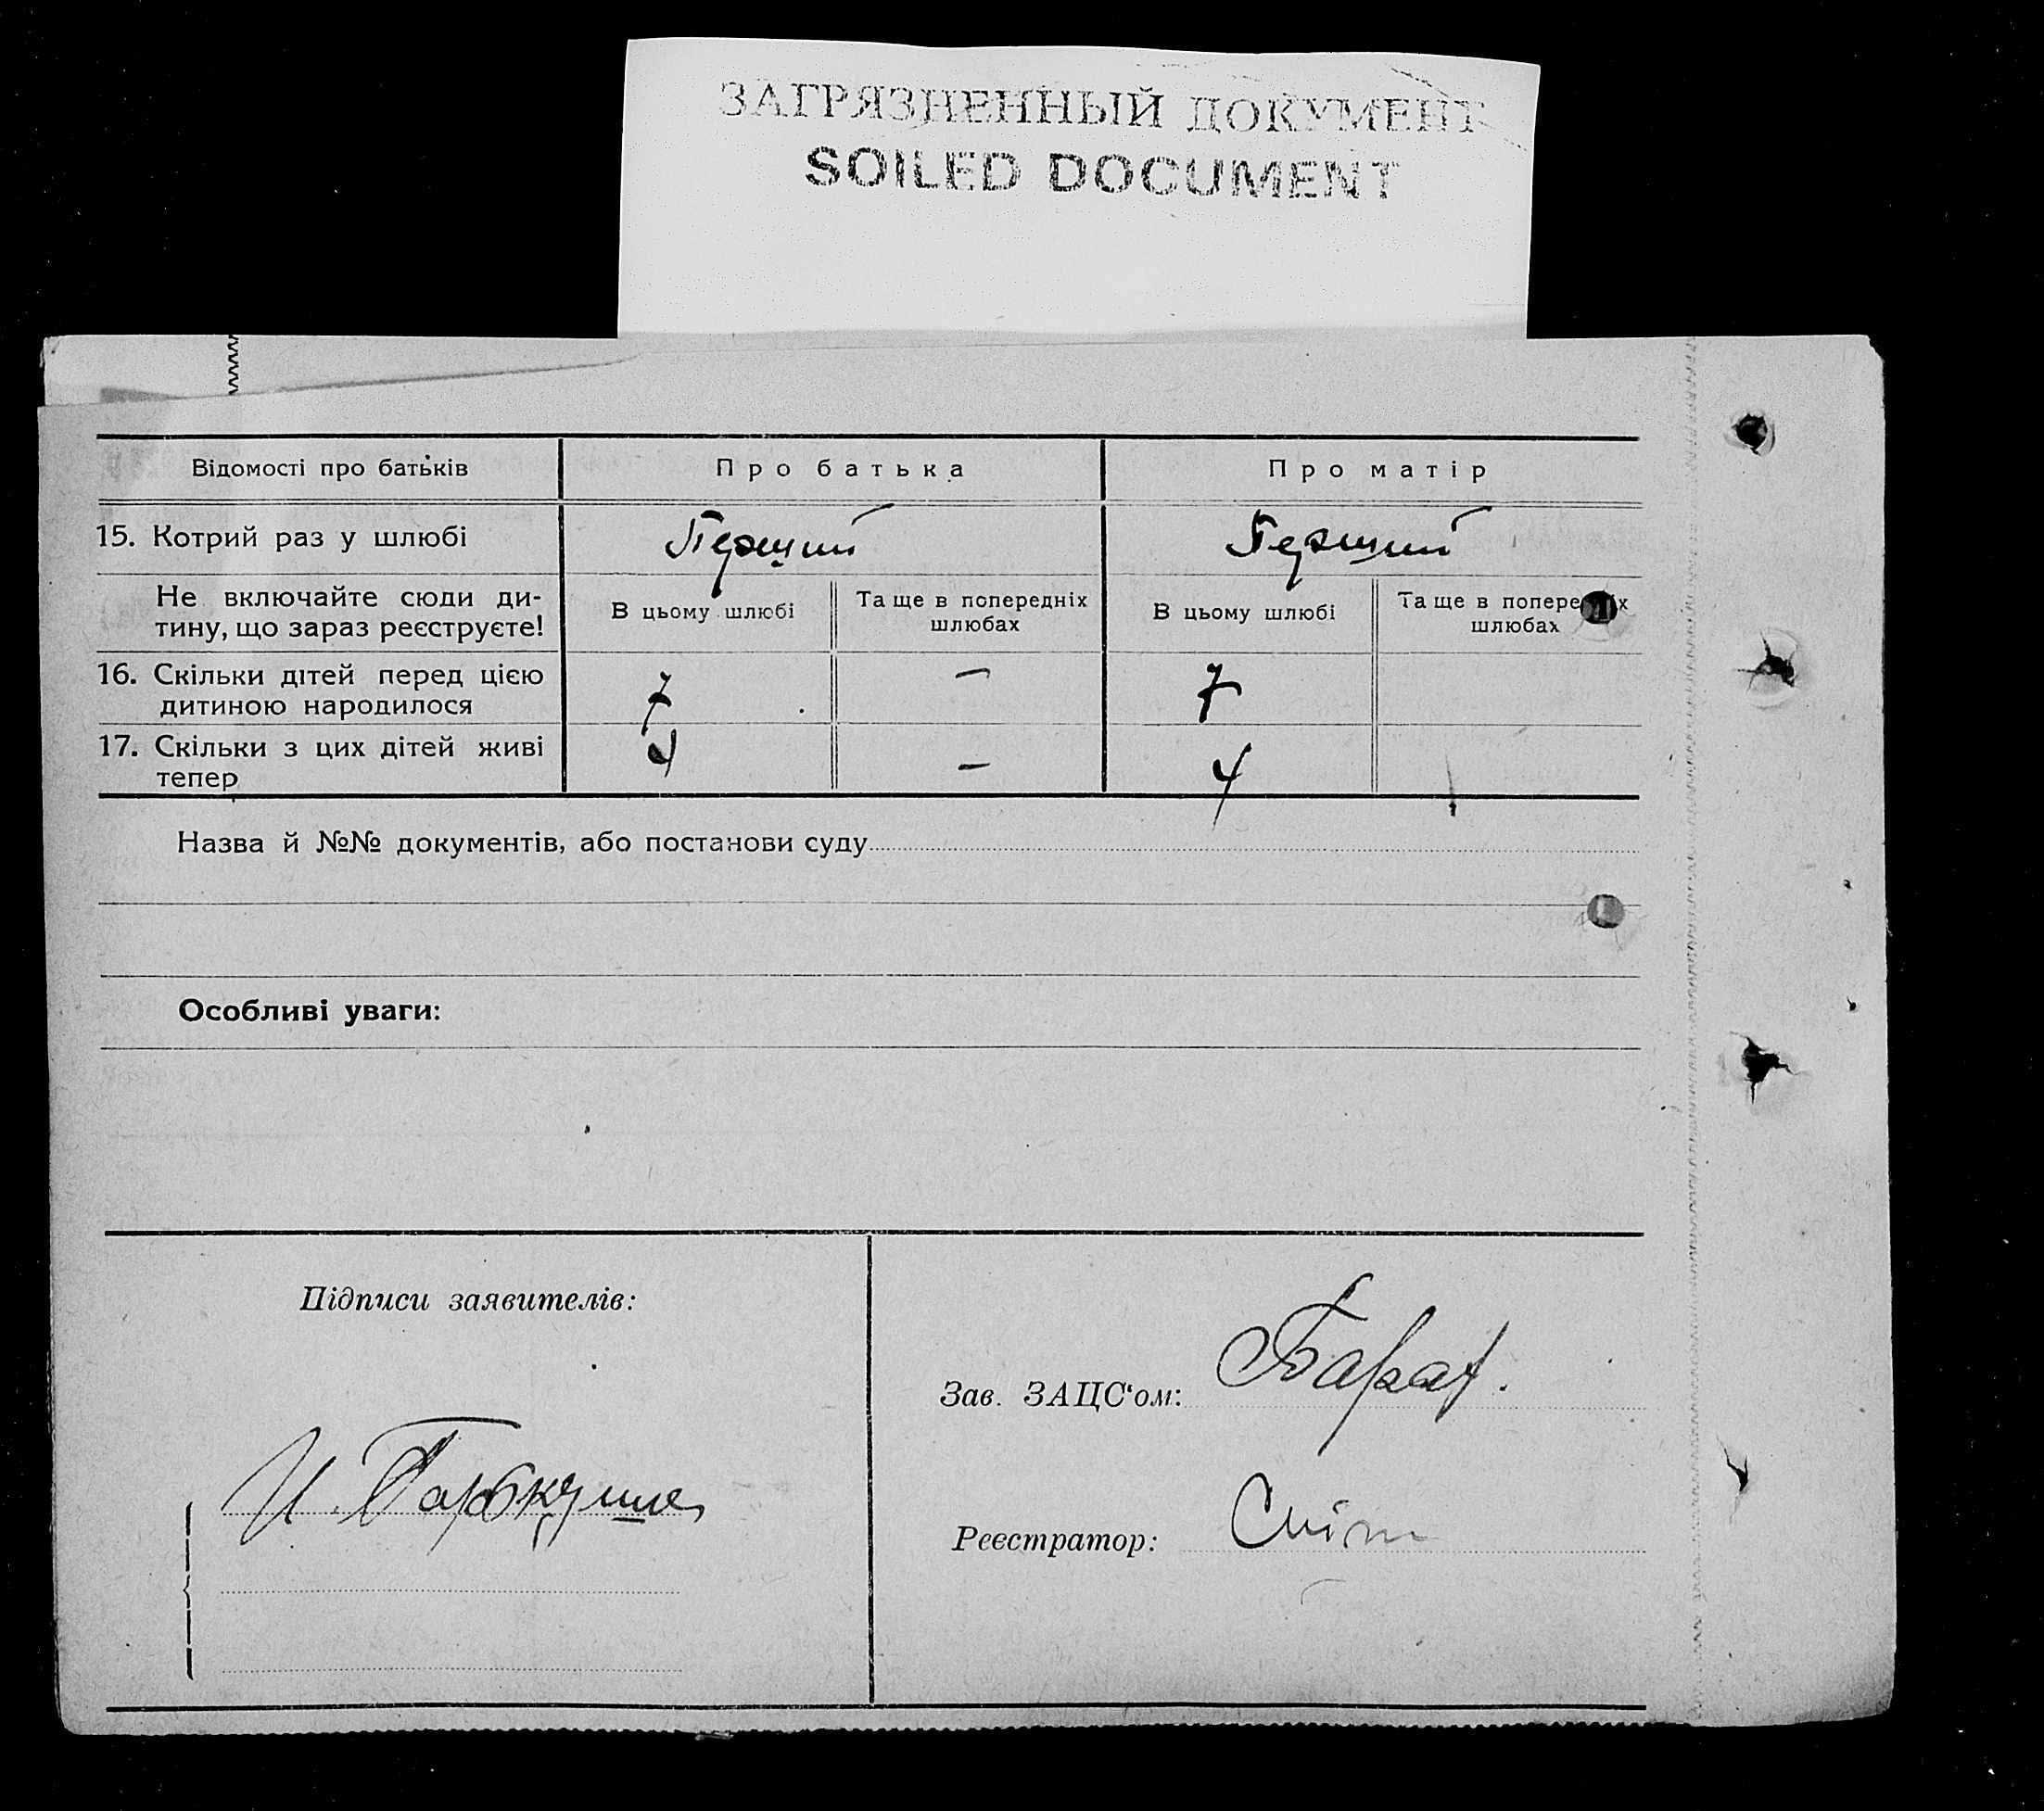 ЗАГРЯЗНЕННЫЙ ДОКУМЕНТ
SOILED DOCUMENT
Відомості про батьків
Про батька
Про матір
15. Котрий раз у шлюбі
Перший
Перший
Не включайте сюди ди-
тину, що зараз реєструєте!
В цьому шлюбі
Та ще в попередніх
шлюбах
В цьому шлюбі
Та ще в попередніх
шлюбах
16. Скільки дітей перед цією
дитиною народилося
7
—
7
17. Скільки з цих дітей живі
тепер
4
—
4
Назва й №№ документів, або постанови суду
Особливі уваги:
Підписи заявителів:
И.
Зав. ЗАЦС‘ом:
Реєстратор: